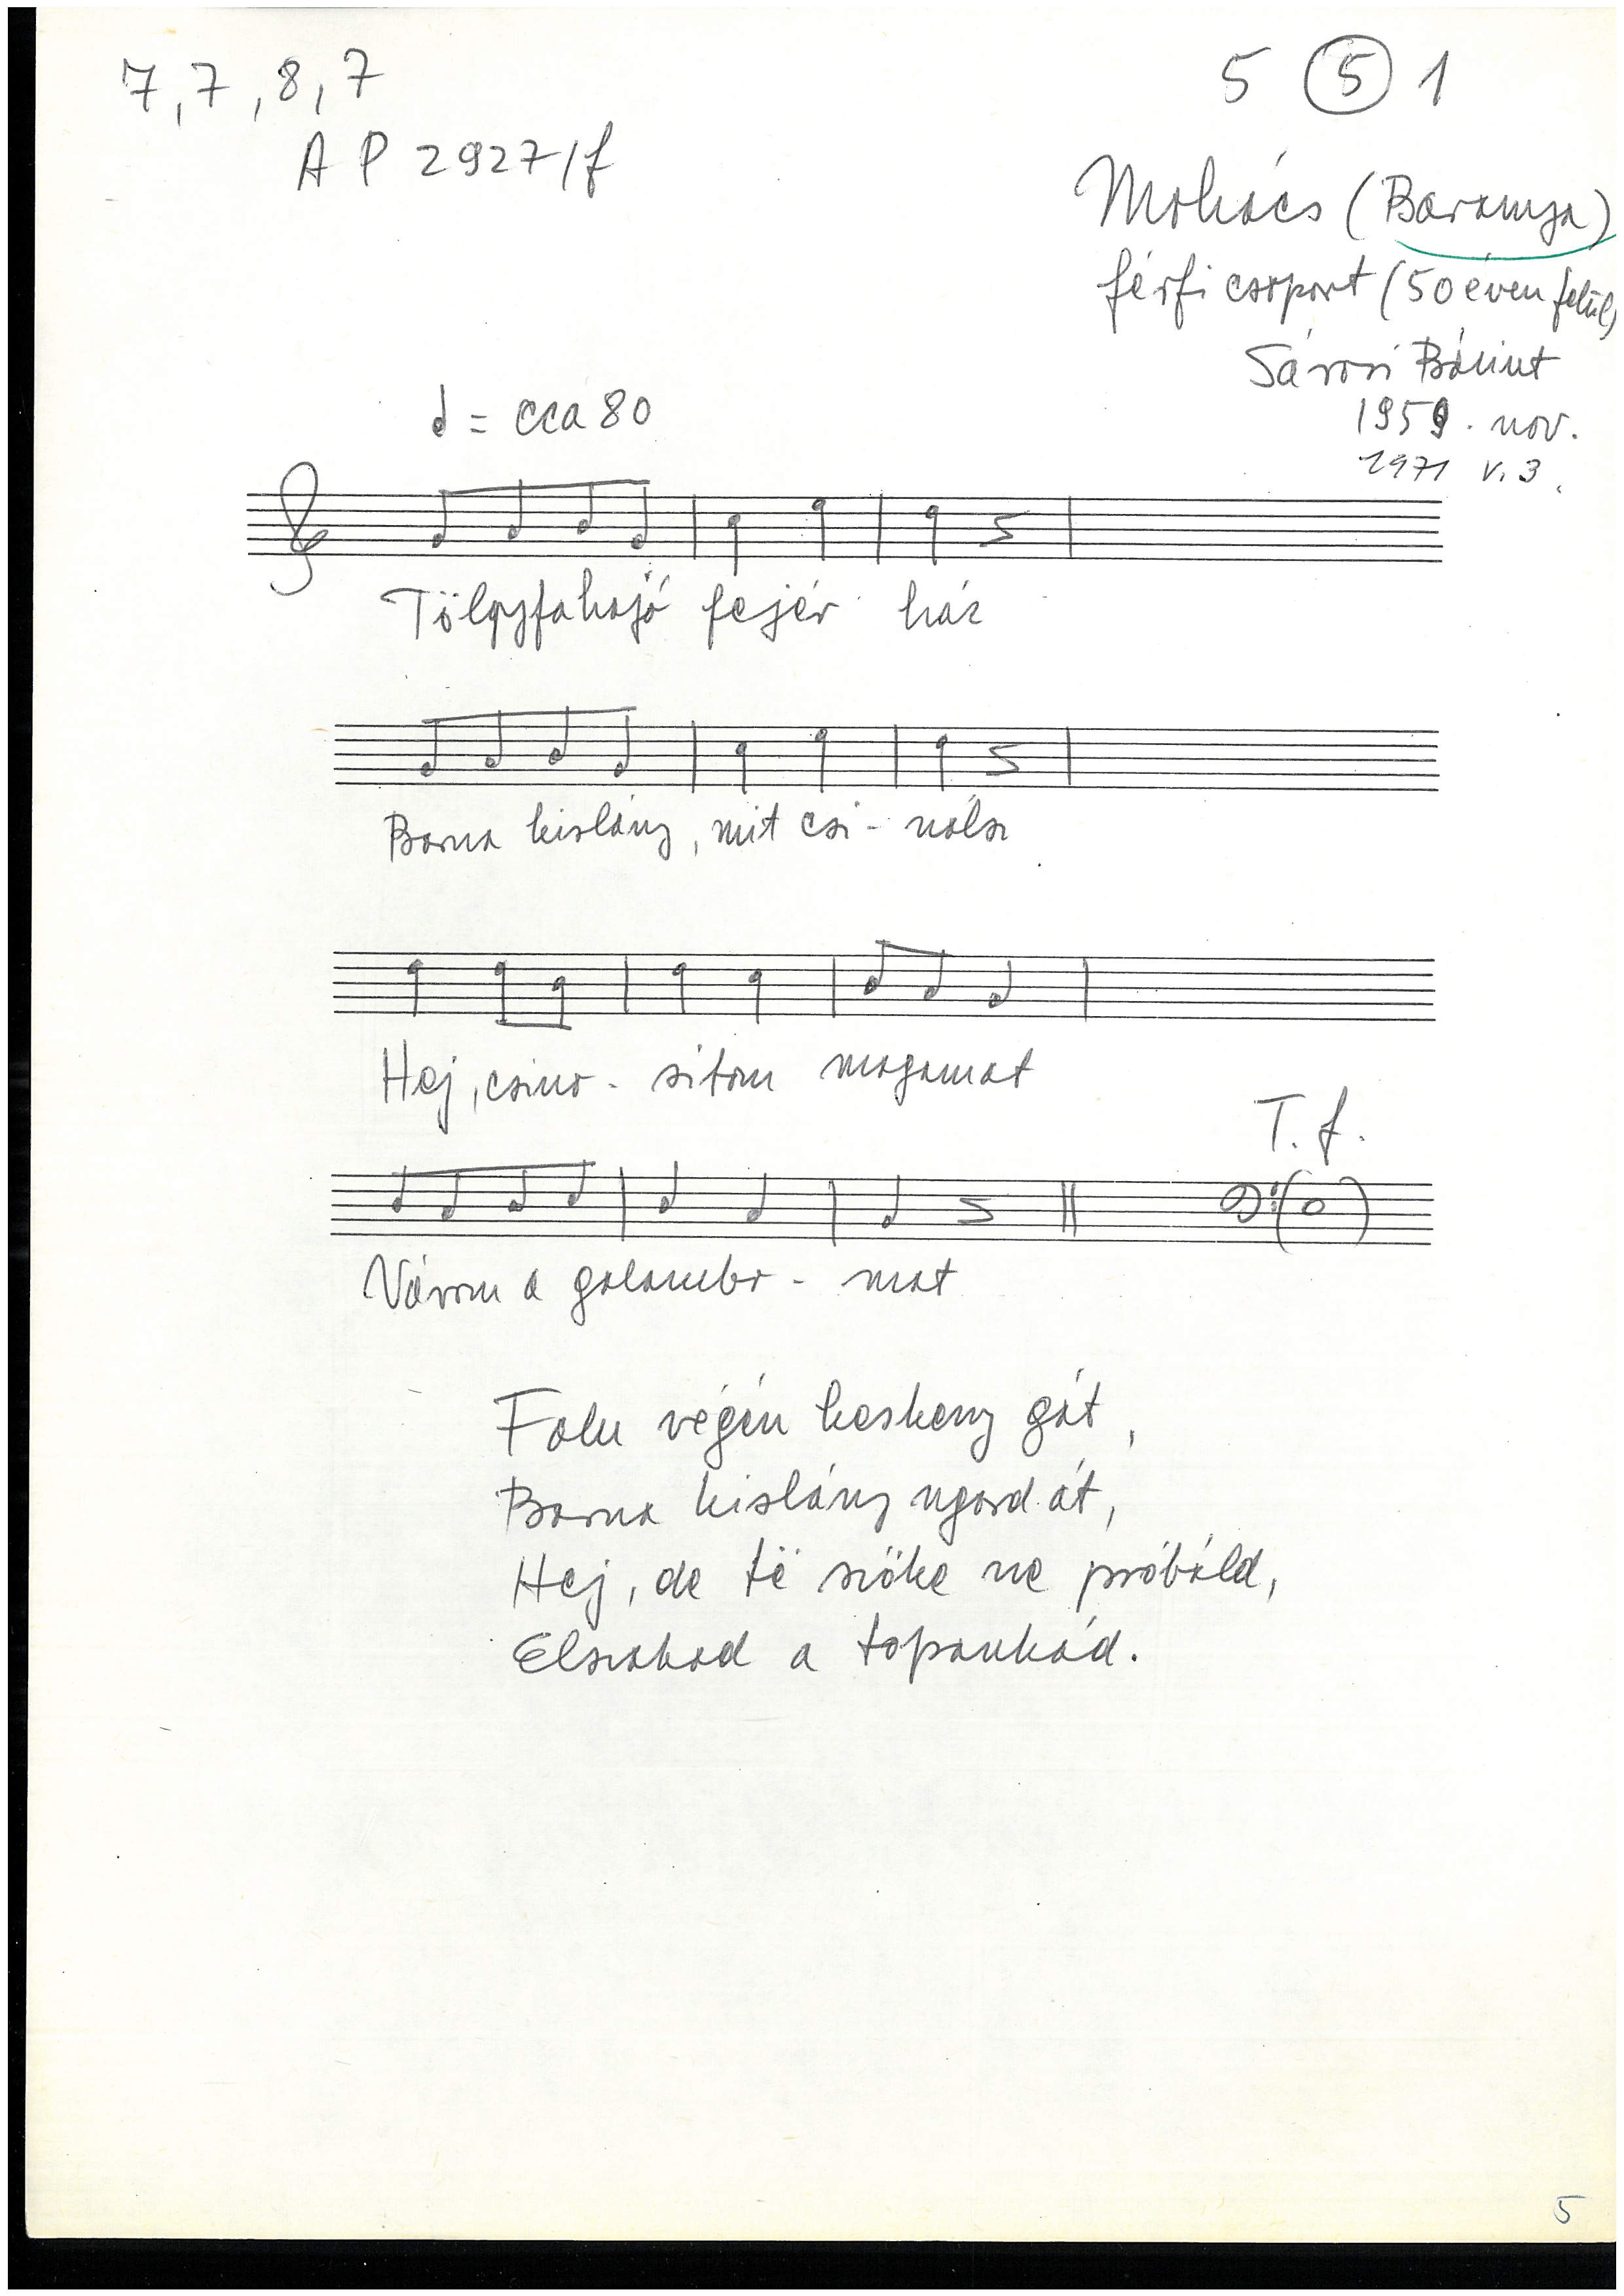 7, 7, 8, 7
5 5 1
AP 2927/f
Mohács (Baranya)
férficsoport (50 éven felül)
Sárosi Bálint
1959. nov.
1971 V. 3.
= cca 80
Tölgyfahajó fejér ház
Barna kislány, mit csi- nálsz
Hej, csino- sitom magamat
T. f.
Várom a galambo- mat
Falu végén keskeny gát,
Barna kislány ugord át,
Hej, de të szöke ne próbáld,
Elszakad a topánkád.
5